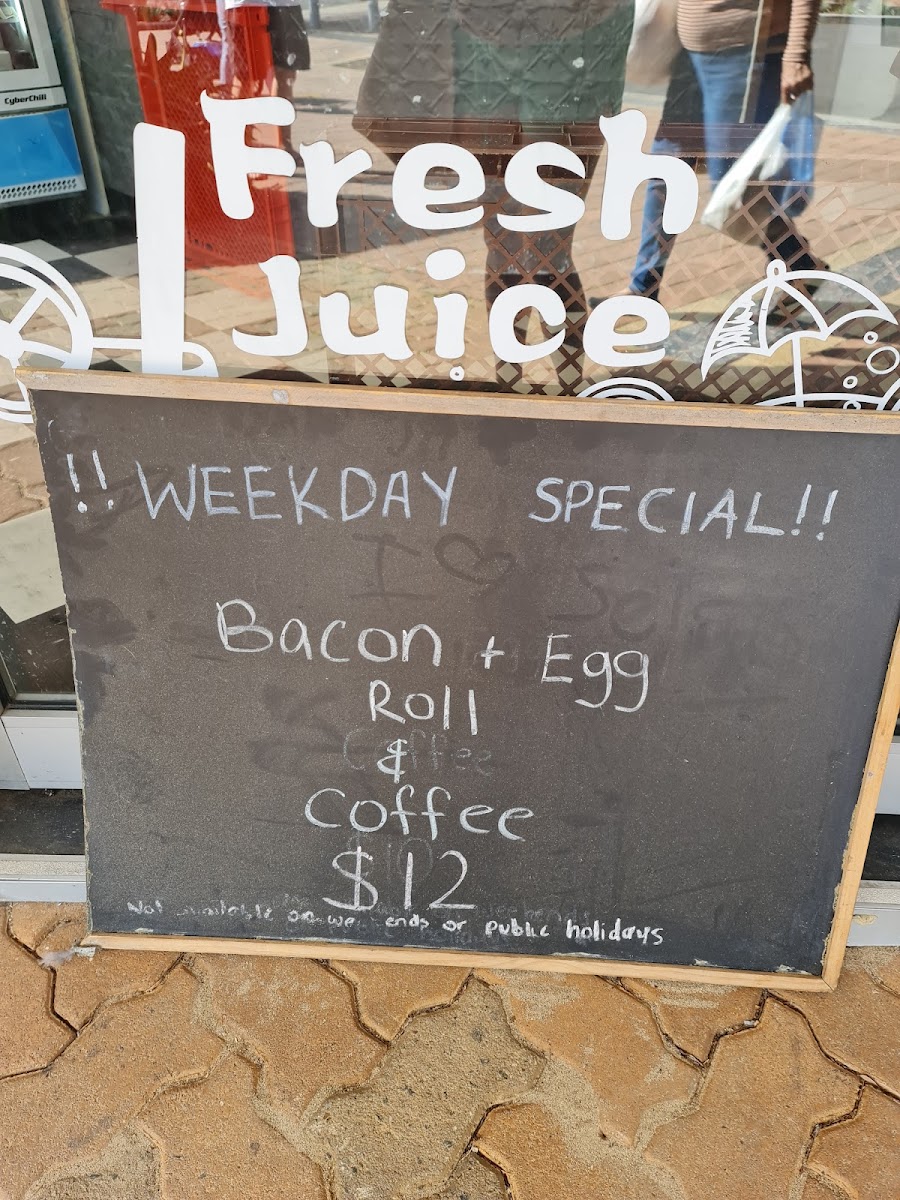 CyberChill
Fresh
Juice
!! WEEKDAY SPECIAL!!
I ♡
Bacon + Egg
Roll
&
Coffee
Coffee
$12
Not available on weekends or public holidays